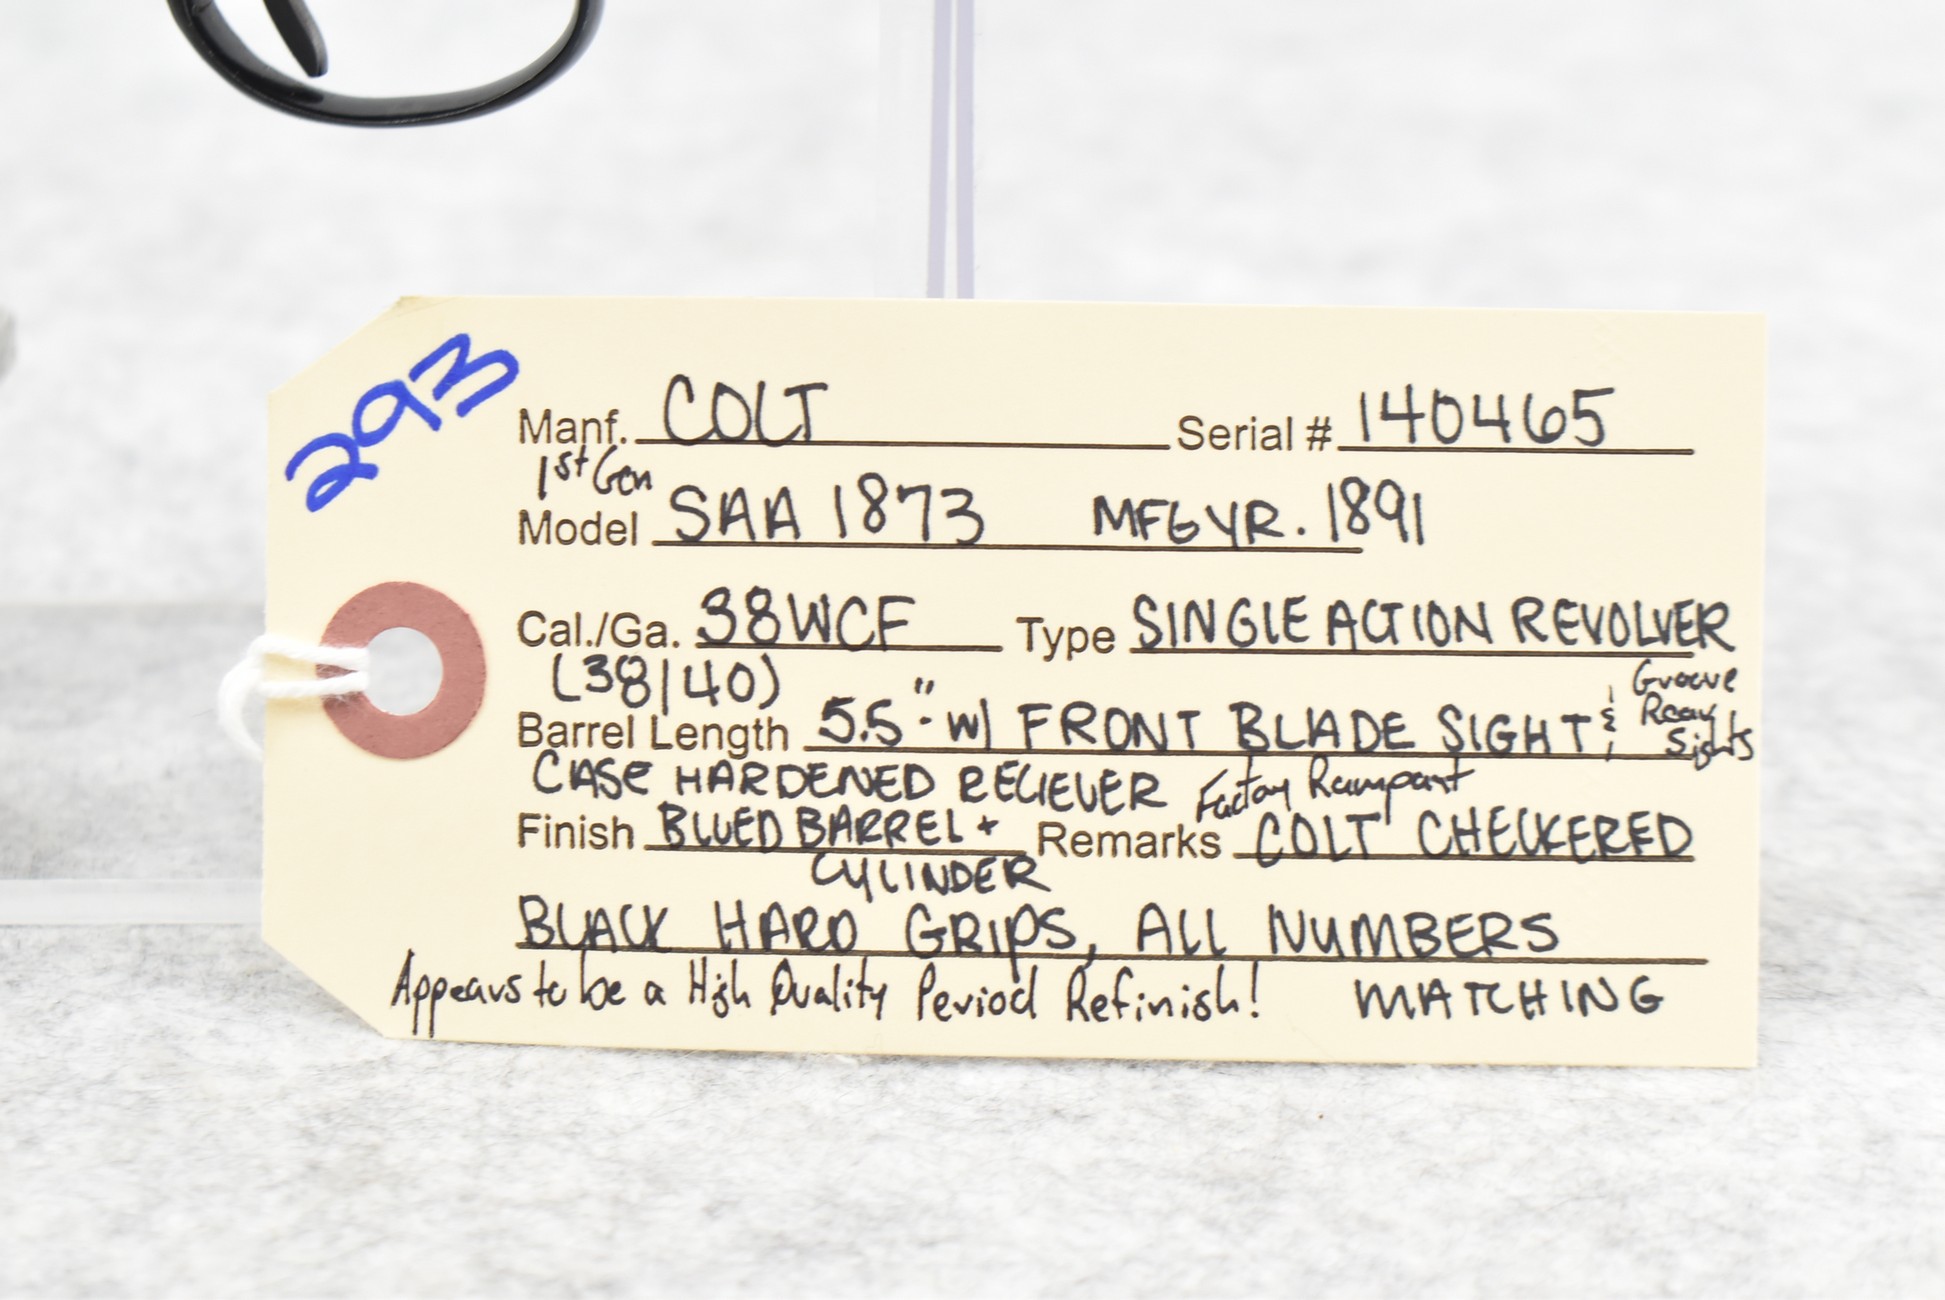 293
Manf. COLT Serial # 140465
1st Gen
Model SAA 1873 MFG YR. 1891
Cal./Ga. 38WCF Type SINGLE ACTION REVOLVER
(38/40)
Barrel Length 5.5" - W/ FRONT BLADE SIGHT & Groove Rear Sights
CASE HARDENED RECIEVER Factory Rampart
Finish BLUED BARREL + Remarks COLT CHECKERED
CYLINDER
BLACK HARD GRIPS, ALL NUMBERS
Appears to be a High Quality Period Refinish! MATCHING